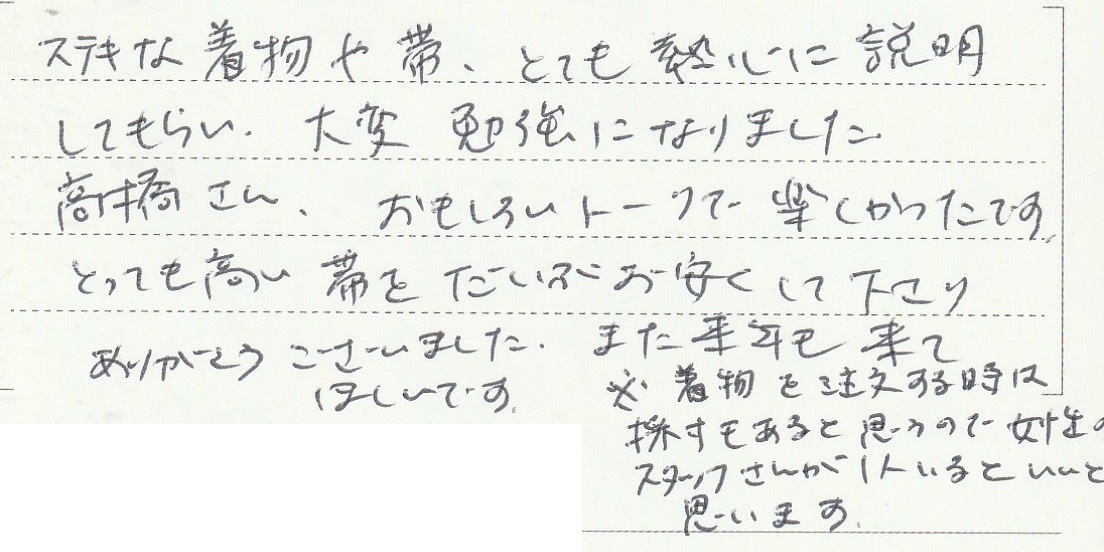 ステキな着物や帯、とても熱心に説明
してもらい、大変 勉強になりました
高橋さん、 おもしろいトークで楽しかったです
とっても高い帯をだいぶお安くして下さり
ありがとうございました。また来年も来て
ほしいです。
※着物を注文する時は
採寸もあると思うので女性の
スタッフさんが1人いるといいと
思います。